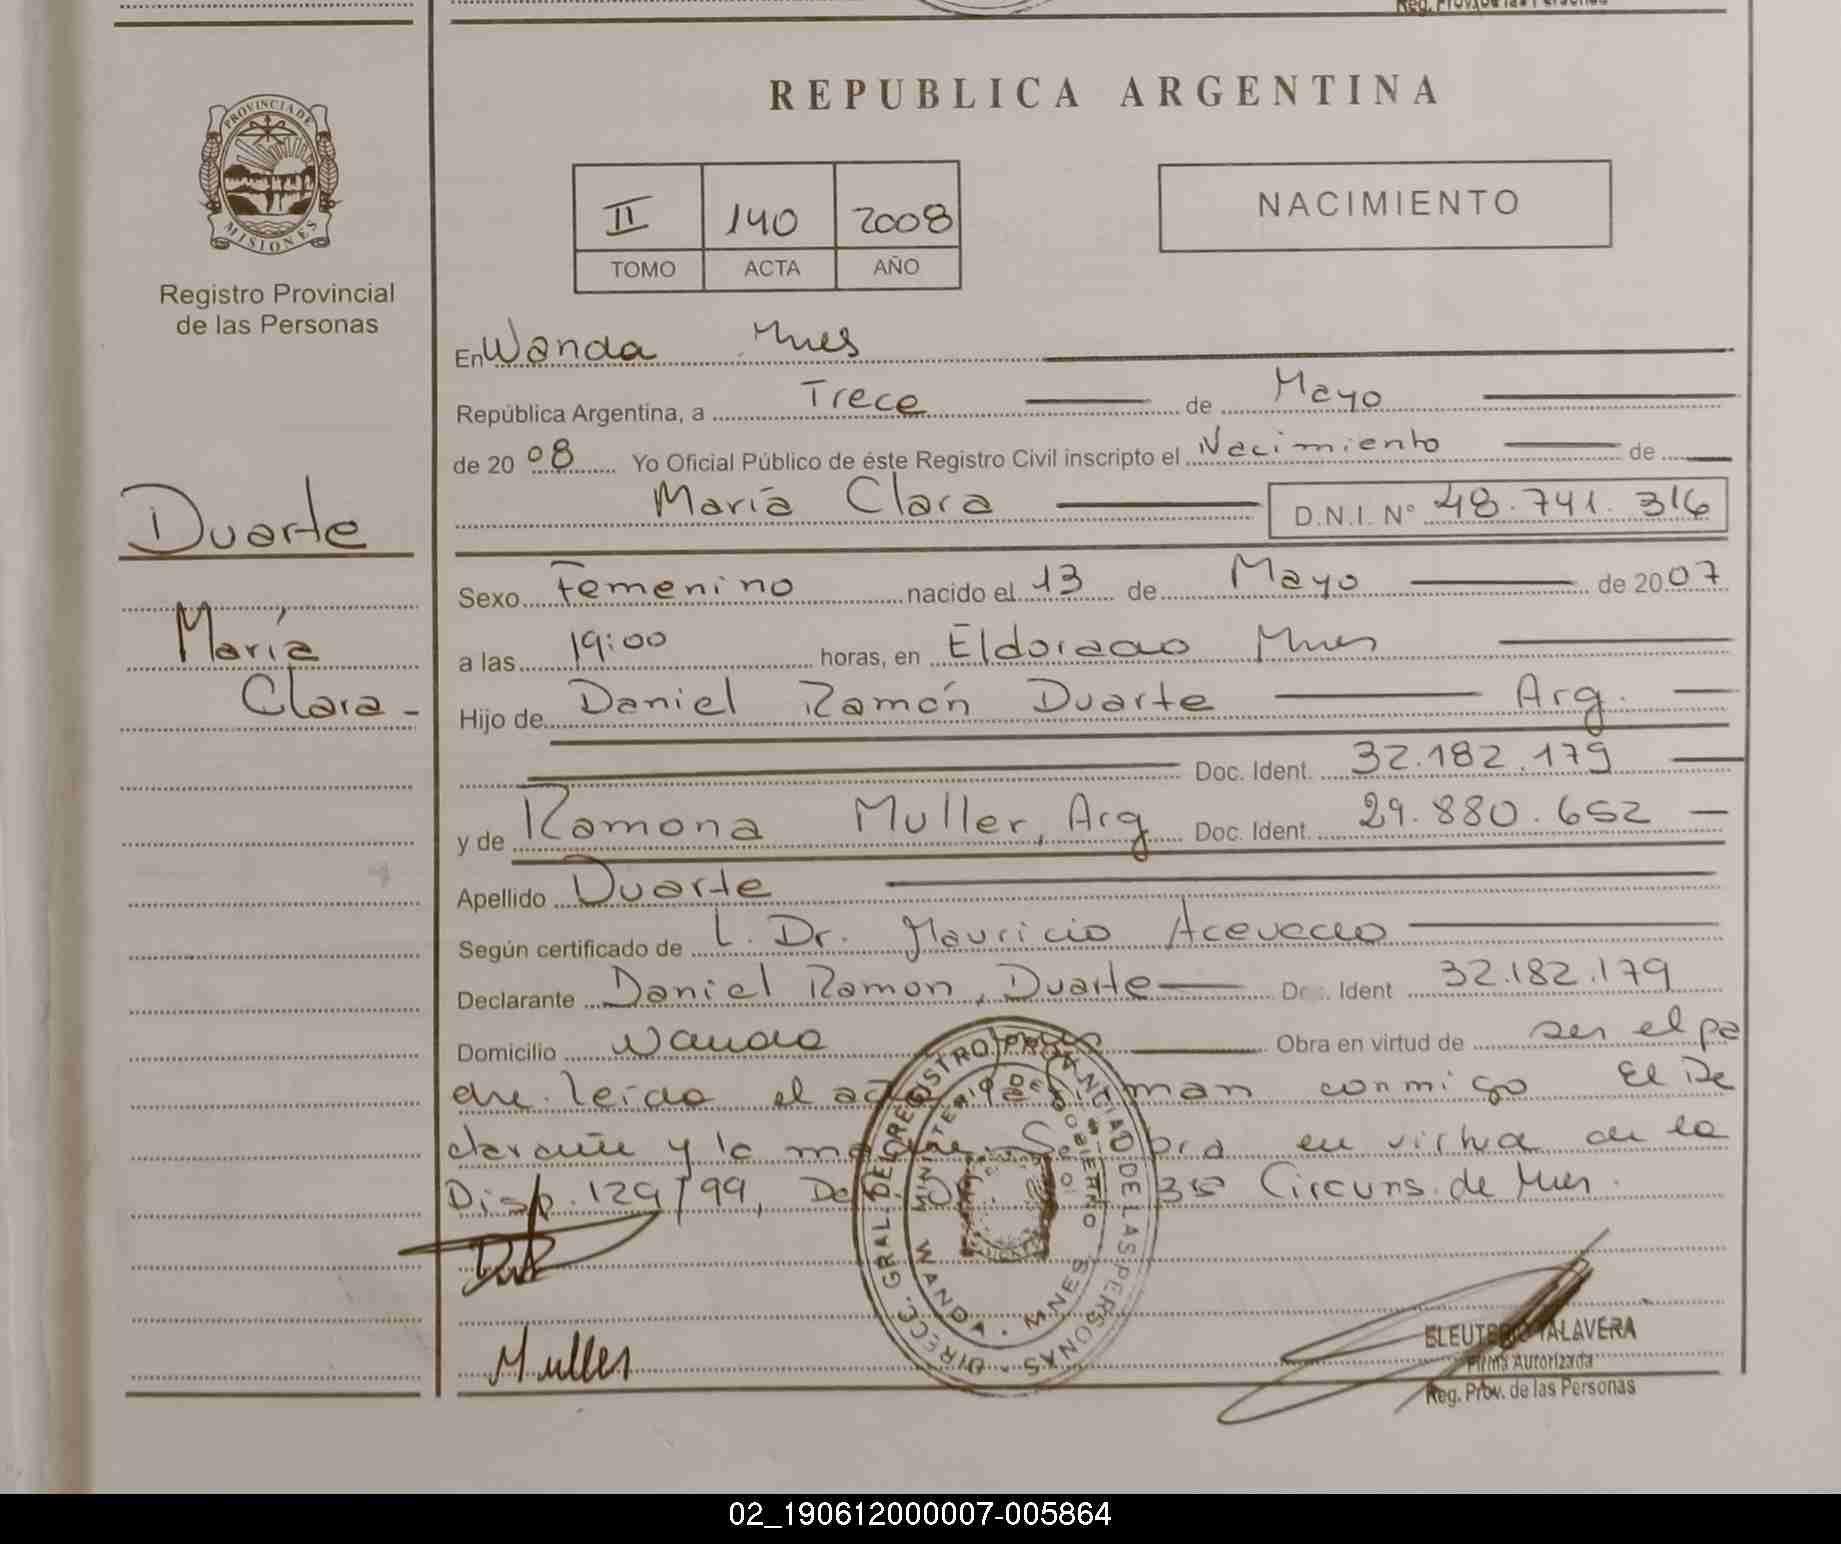 Reg. Prov. de las Personas
REPUBLICA ARGENTINA
PROVINCIA DE
MISIONES
Registro Provincial
de las Personas
II 140 2008
TOMO ACTA AÑO
NACIMIENTO
En Wanda Mnes
República Argentina, a Trece de Mayo
de 20 08 Yo Oficial Público de éste Registro Civil inscripto el Nacimiento de
María Clara D.N.I. N° 48.741.316
Duarte
María
Clara -
Sexo Femenino nacido el 13 de Mayo de 20 07
a las 19:00 horas, en Eldorado Mnes
Hijo de Daniel Ramón Duarte Arg.
Doc. Ident. 32.182.179
y de Ramona Muller, Arg Doc. Ident. 29.880.652
Apellido Duarte
Según certificado de L. Dr. Mauricio Acevedo
Declarante Daniel Ramon, Duarte Doc. Ident 32.182.179
Domicilio Wanda Obra en virtud de ser el pa
dre. leida el acta firman conmigo El De
clarante y la madre. Se obra en virtud de la
Disp. 129/99, 35 Circuns. de Mnes.
DIRECC. GRAL. DEL REGISTRO PROVINCIAL DE LAS PERSONAS
MINISTERIO DE GOBIERNO
WANDA - MNES
Muller
ELEUTERIO TALAVERA
Firma Autorizada
Reg. Prov. de las Personas
02_190612000007-005864